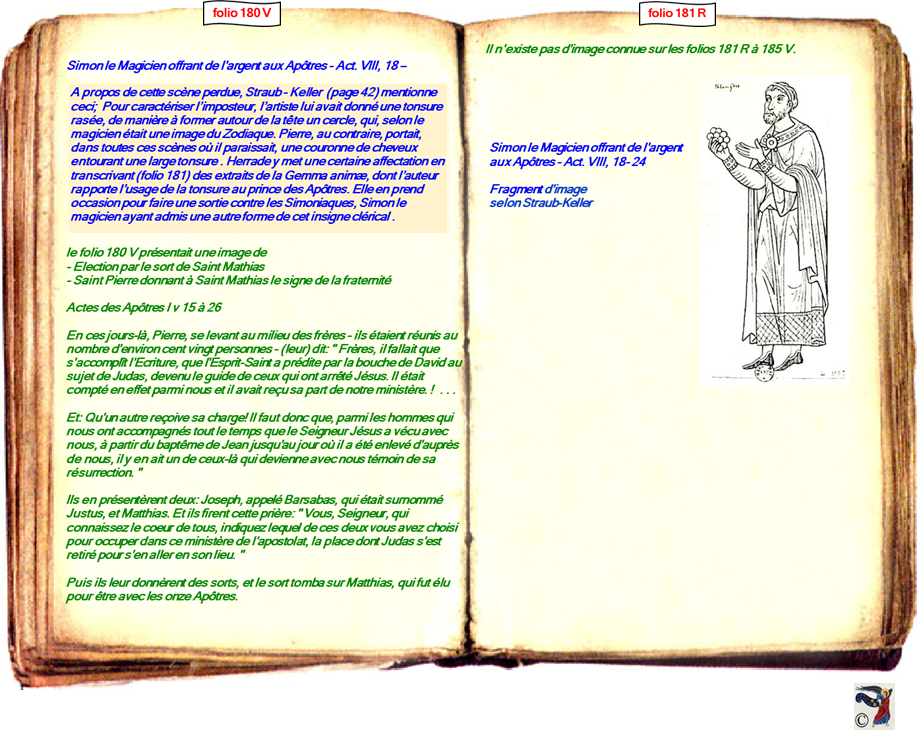 folio 180 V
Simon le Magicien offrant de l'argent aux Apôtres - Act. VIII, 18 –
A propos de cette scène perdue, Straub - Keller (page 42) mentionne
ceci; Pour caractériser l'imposteur, l'artiste lui avait donné une tonsure
rasée, de manière à former autour de la tête un cercle, qui, selon le
magicien était une image du Zodiaque. Pierre, au contraire, portait,
dans toutes ces scènes où il paraissait, une couronne de cheveux
entourant une large tonsure . Herrade y met une certaine affectation en
transcrivant (folio 181) des extraits de la Gemma animæ, dont l'auteur
rapporte l'usage de la tonsure au prince des Apôtres. Elle en prend
occasion pour faire une sortie contre les Simoniaques, Simon le
magicien ayant admis une autre forme de cet insigne clérical .
le folio 180 V présentait une image de
- Election par le sort de Saint Mathias
- Saint Pierre donnant à Saint Mathias le signe de la fraternité
Actes des Apôtres I v 15 à 26
En ces jours-là, Pierre, se levant au milieu des frères - ils étaient réunis au
nombre d'environ cent vingt personnes - (leur) dit: " Frères, il fallait que
s'accomplît l'Ecriture, que l'Esprit-Saint a prédite par la bouche de David au
sujet de Judas, devenu le guide de ceux qui ont arrêté Jésus. Il était
compté en effet parmi nous et il avait reçu sa part de notre ministère. ! . . .
Et: Qu'un autre reçoive sa charge! Il faut donc que, parmi les hommes qui
nous ont accompagnés tout le temps que le Seigneur Jésus a vécu avec
nous, à partir du baptême de Jean jusqu'au jour où il a été enlevé d'auprès
de nous, il y en ait un de ceux-là qui devienne avec nous témoin de sa
résurrection. "
Ils en présentèrent deux: Joseph, appelé Barsabas, qui était surnommé
Justus, et Matthias. Et ils firent cette prière: " Vous, Seigneur, qui
connaissez le coeur de tous, indiquez lequel de ces deux vous avez choisi
pour occuper dans ce ministère de l'apostolat, la place dont Judas s'est
retiré pour s'en aller en son lieu. "
Puis ils leur donnèrent des sorts, et le sort tomba sur Matthias, qui fut élu
pour être avec les onze Apôtres.
folio 181 R
Il n'existe pas d'image connue sur les folios 181 R à 185 V.
Simon le Magicien offrant de l'argent
aux Apôtres - Act. VIII, 18- 24
Fragment d'image
selon Straub-Keller
©